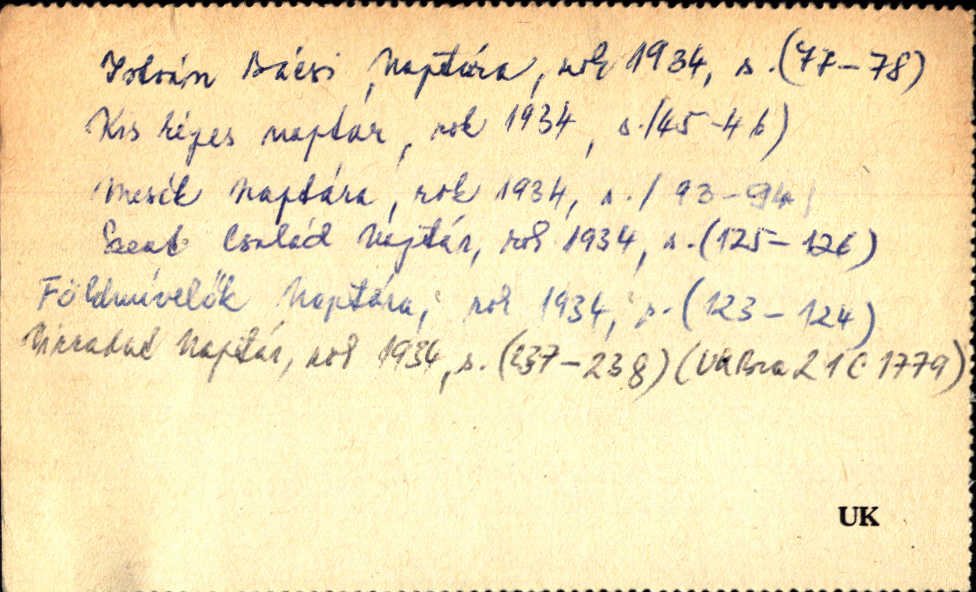 István Bácsi Naptára, rok 1934, s. (77-78)
Kis képes naptár, rok 1934, s. (45-46)
Mesék Naptára, rok 1934, s. (93-94)
Szent Család Naptár, rok 1934, s. (125-126)
Földmívelők Naptára, rok 1934, s. (123-124)
Naptár, rok 1934, s. (237-238) (UKBra 21 C 1779)
UK